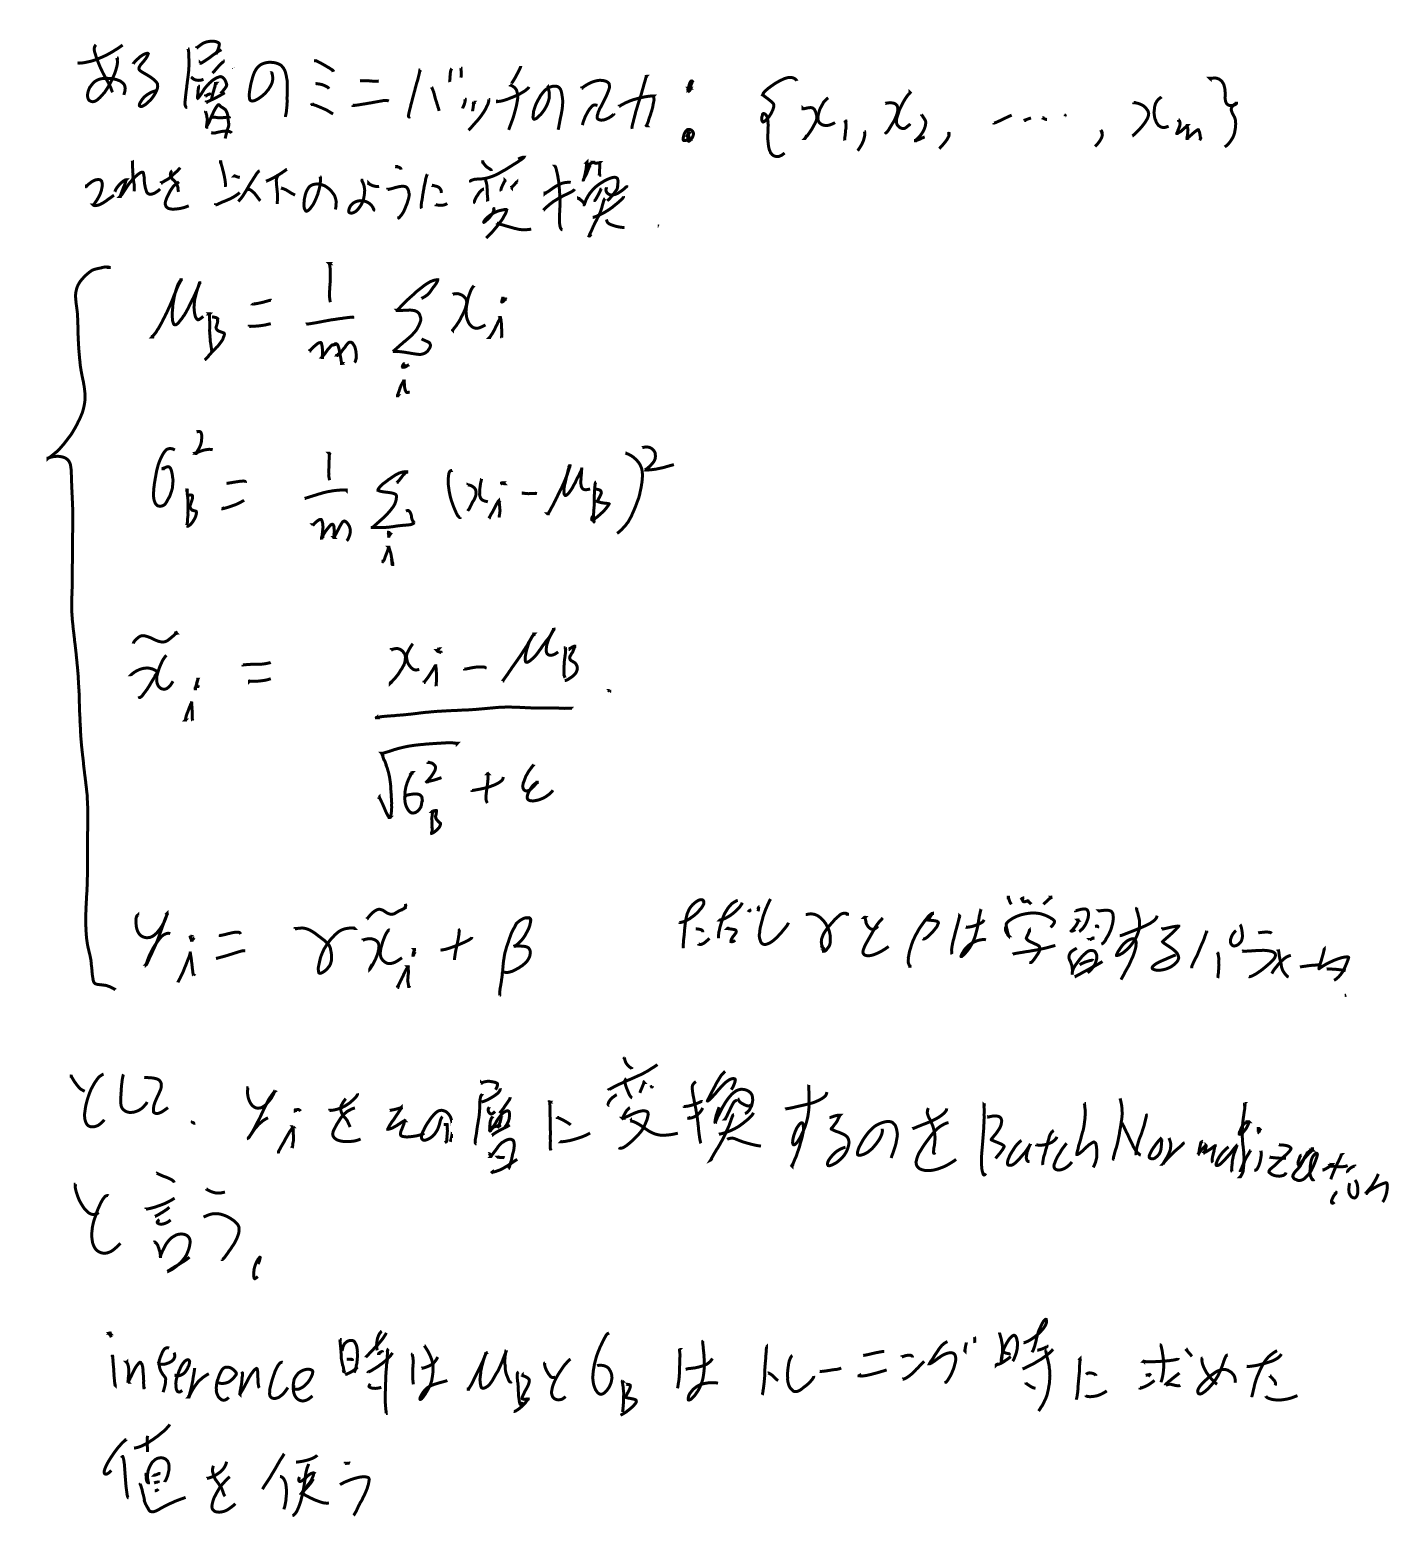 ある層のミニバッチの入力: {x₁, x₂, ‥‥, xₘ}
これを以下のように変換.
μ_B = 1/m Σ_i x_i
σ_B² = 1/m Σ_i (x_i - μ_B)²
x̃_i = (x_i - μ_B) / (√σ_B² + ε).
y_i = γx̃_i + β ただしγとβは学習するパラメータ.
として. y_iをその層に変換するのをBatchNormalization
と言う.
inference時はμ_Bとσ_Bはトレーニング時に求めた
値を使う